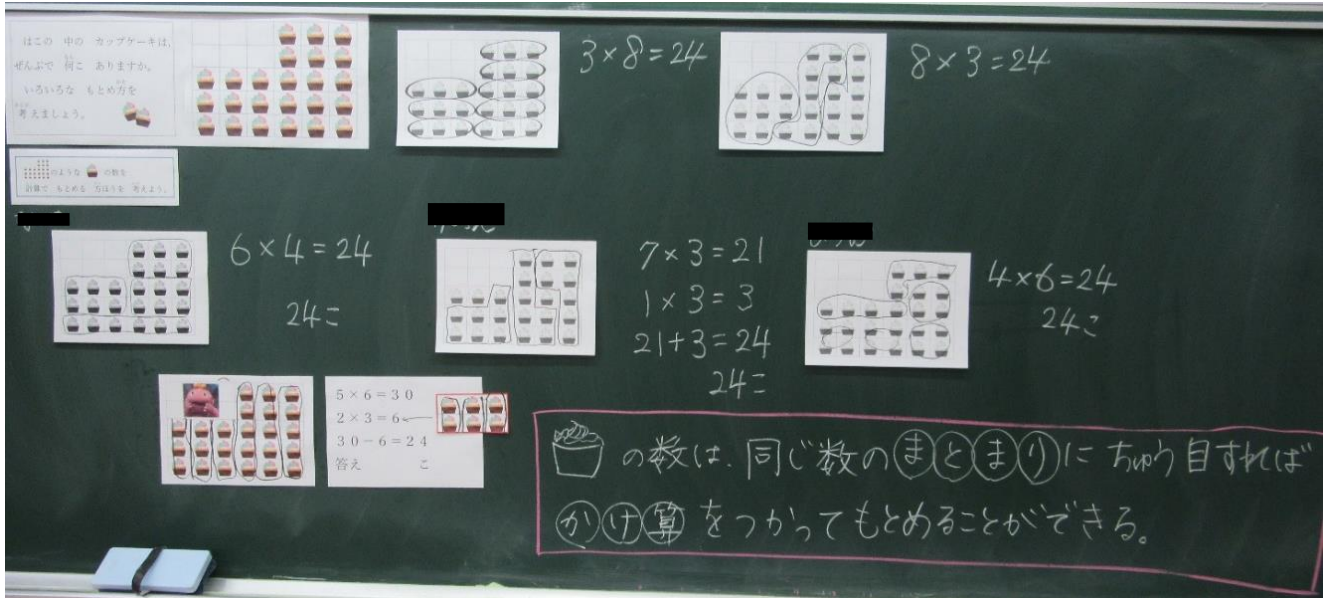 はこの 中の カップケーキは、
ぜんぶで 何こ ありますか。
いろいろな もとめ方を
考えましょう。
のような の数を
計算で もとめる 方ほうを 考えよう。
3×8=24
8×3=24
6×4=24
24こ
7×3=21
1×3=3
21+3=24
24こ
4×6=24
24こ
5×6=30
2×3=6
30-6=24
答え こ
の数は、同じ数のまとまりに ちゅう目すれば
かけ算をつかってもとめることができる。